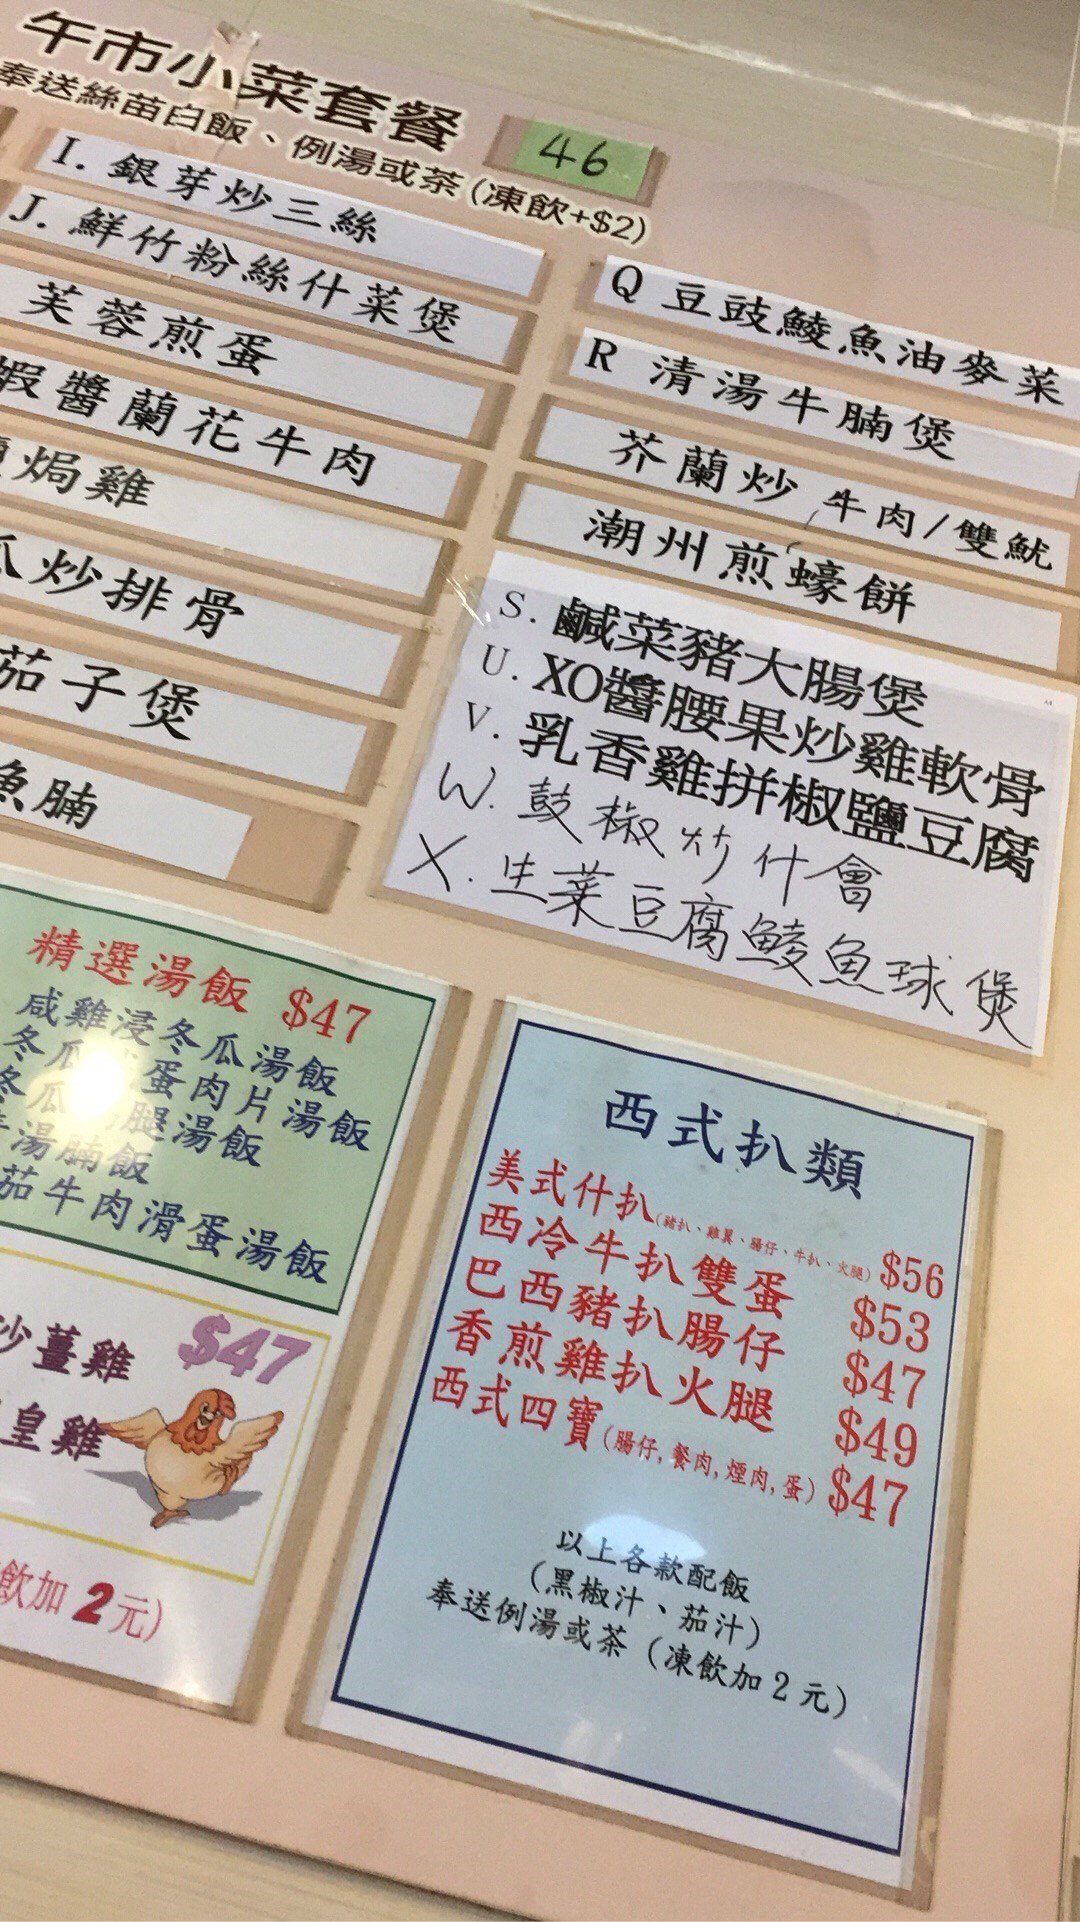 午市小菜套餐 46
奉送絲苗白飯、例湯或茶(凍飲+$2)
I. 銀芽炒三絲
J. 鮮竹粉絲什菜煲
芙蓉煎蛋
蝦醬蘭花牛肉
焗雞
瓜炒排骨
茄子煲
魚腩
Q 豆豉鯪魚油麥菜
R 清湯牛腩煲
芥蘭炒 牛肉/雙魷
潮州煎蠔餅
S. 鹹菜豬大腸煲
U. XO醬腰果炒雞軟骨
V. 乳香雞拼椒鹽豆腐
W. 鼓椒炒什會
X. 生菜豆腐鯪魚球煲
精選湯飯 $47
咸雞浸冬瓜湯飯
冬瓜 蛋肉片湯飯
冬瓜 腿湯飯
湯腩飯
茄牛肉滑蛋湯飯
炒薑雞 $47
皇雞
飲加 2元)
西式扒類
美式什扒(豬扒、雞翼、腸仔、牛扒、火腿) $56
西冷牛扒雙蛋 $53
巴西豬扒腸仔 $47
香煎雞扒火腿 $49
西式四寶(腸仔,餐肉,煙肉,蛋) $47
以上各款配飯
(黑椒汁、茄汁)
奉送例湯或茶 (凍飲加2元)